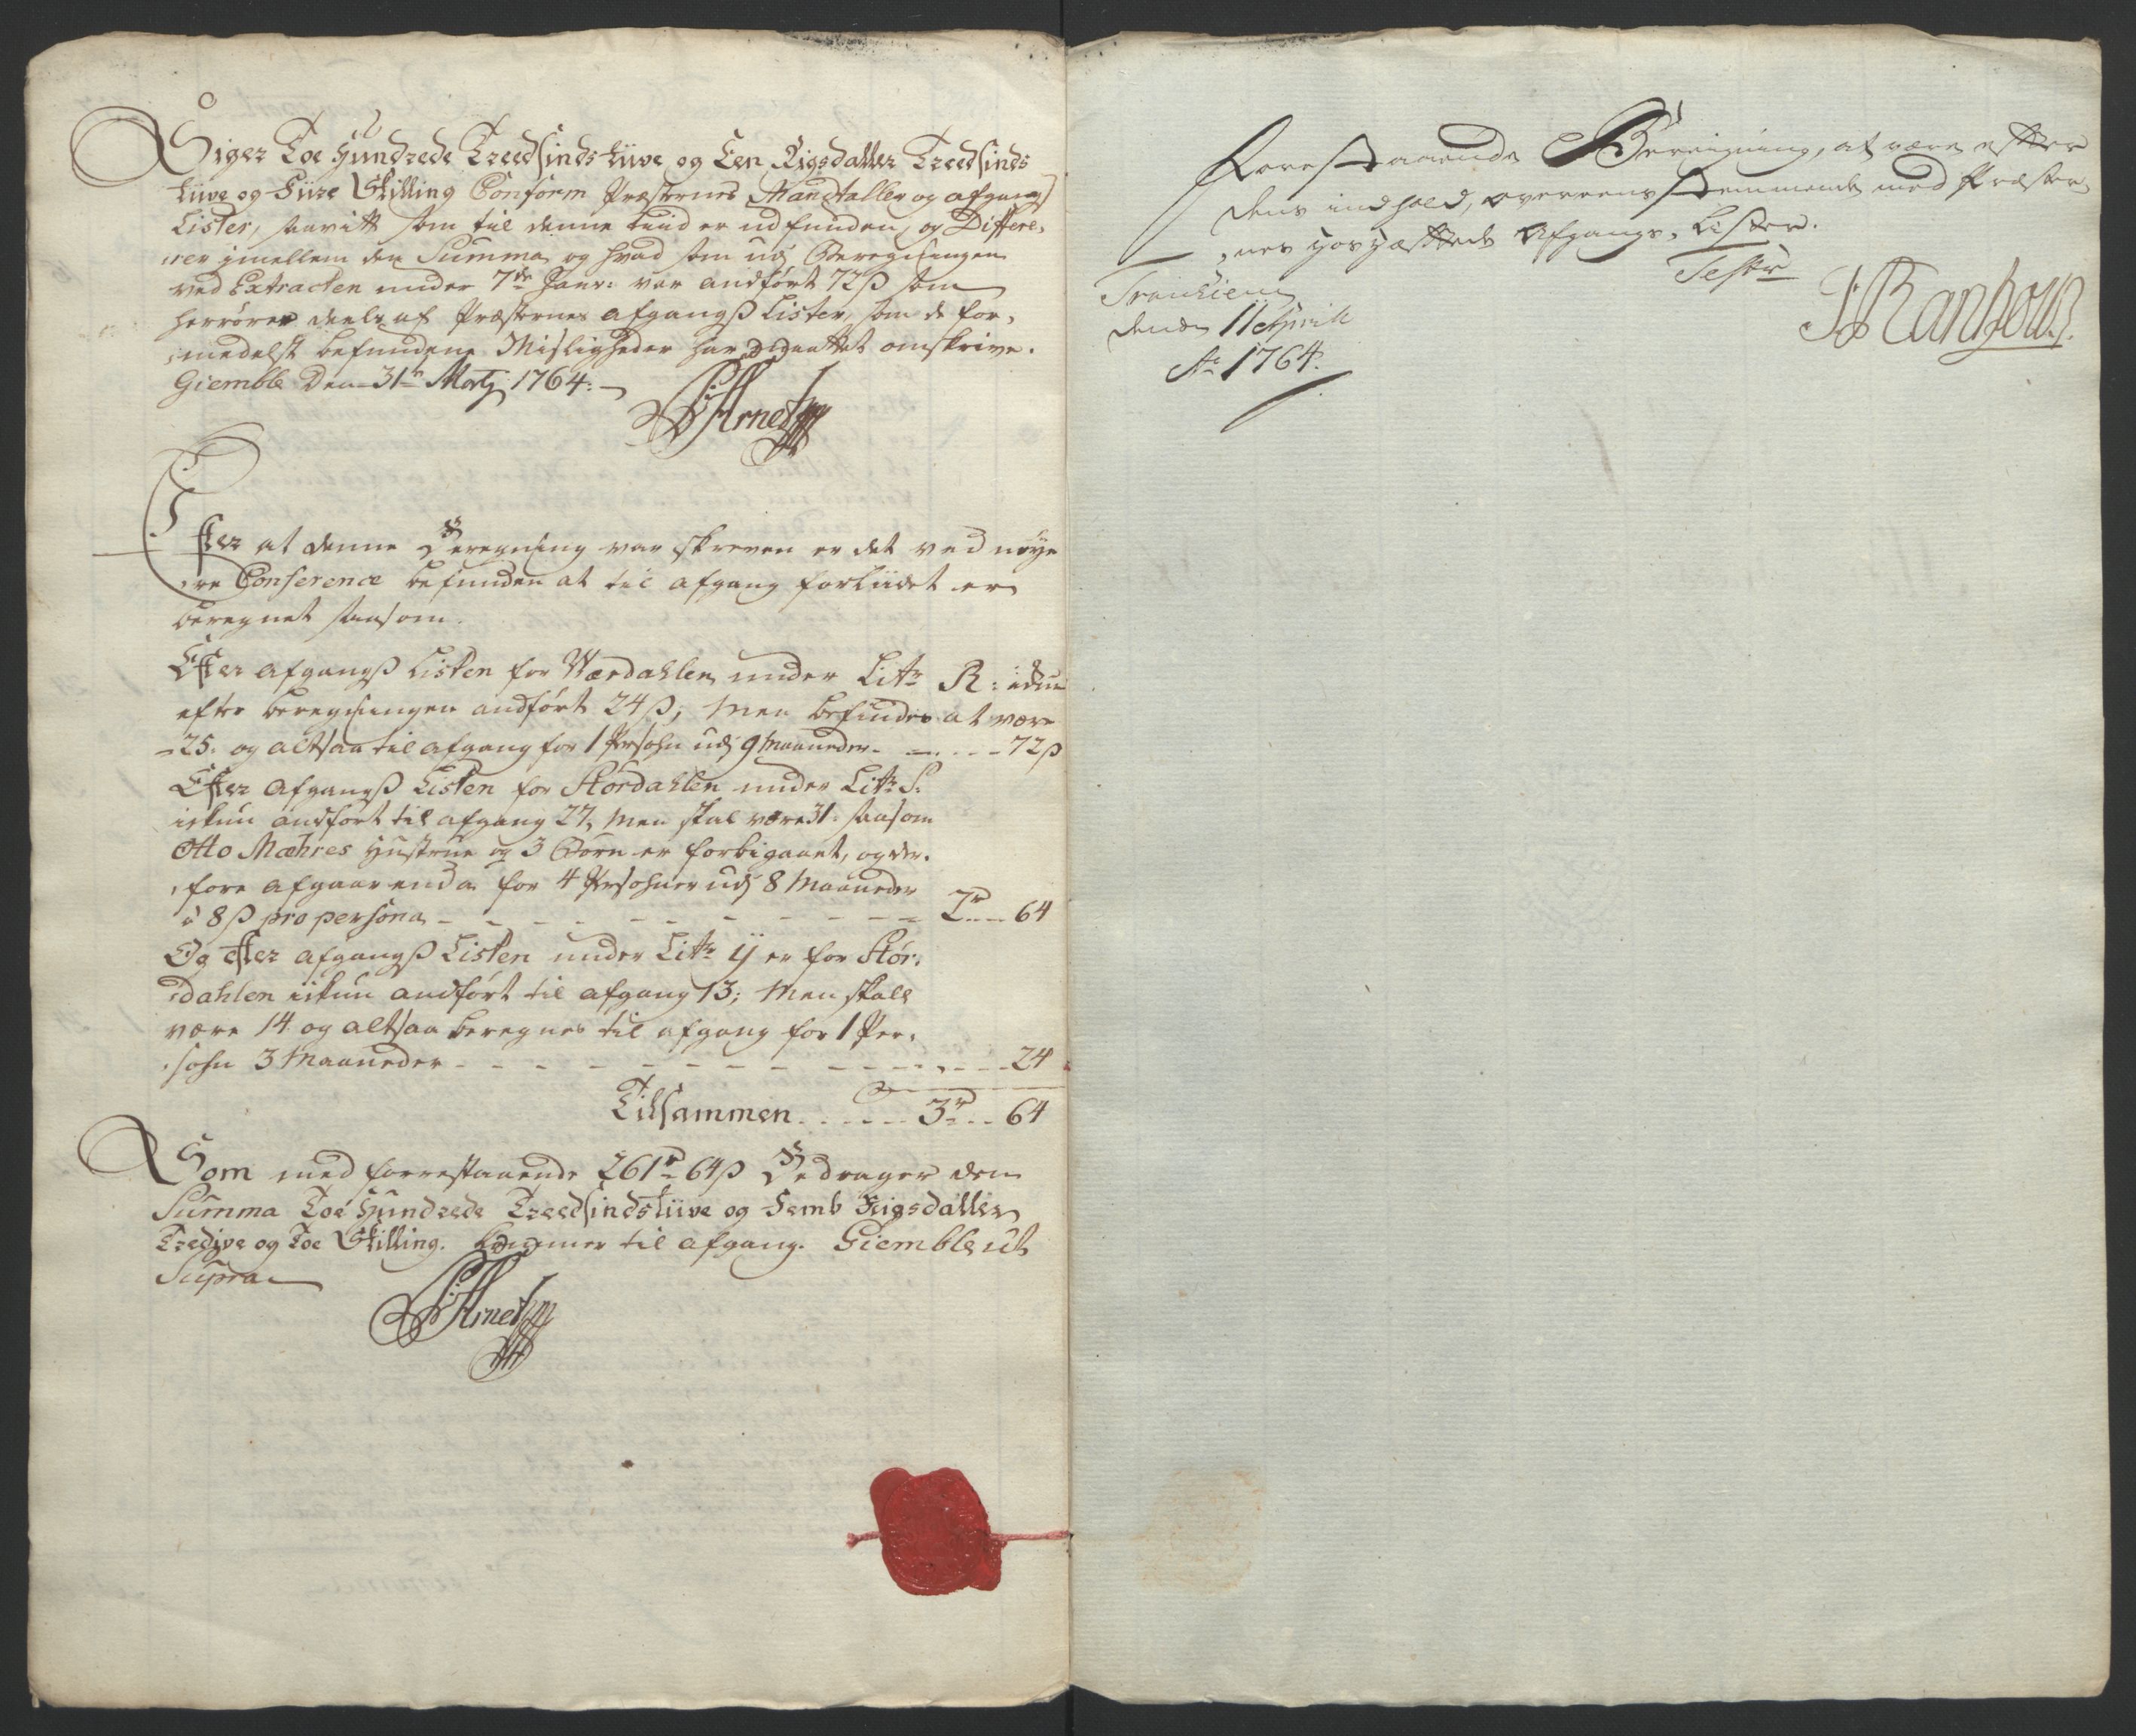 Siger Toe Hundrede Treedsindstiive og Een Rigsdaller Treedsinds
tiive og Fiire Skilling Conform Præsternes Mandtaller og afgangs
Lister, saavitt som til denne tiid er udfunden, og Differe-
rer imellem den Summa og hvad som udj Beregningen
ved Extracten under 7de Janr: var andført 72 ß som
herrører deels af Præsternes afgangß Lister, som de for-
medelst befundene Misligheder har maattet omskrive.
Giemble Den 31te Martj 1764.
Arnet
Efter at denne Beregning var skreven er det ved nøye
re Conference befunden at til afgang forliidet er
beregnet saasom.
Efter afgangß Listen for Værdahlen under Litr R: er udj
efter beregningen andført 24 ß, Men befindes at være
25. og altsaa til afgang for 1 Persohn udj 9 Maaneder 72 ß
Efter afgangß Listen for Størdahlen under Litr S:
ickun andført til afgang 27, Men skal være 31. saasom
Otto Mæhres Hustrue og 3 Børn er forbigaaet, og der-
fore afgaar enda for 4 Persohner udj 8 Maaneder
à 8 ß pro persona 2 r 64
Og efter afgangß Listen under Litr Y er for Stør-
dahlen ickun andført til afgang 13; Men skall
være 14 og altsaa beregnes til afgang for 1 Per-
sohn 3 Maaneder 24
Tilsammen 3 r 64
Som med forrestaaende 261 r 64 ß Bedrager den
Summa Toe Hundrede Treedsindstiive og Femb Rigsdaller
Tredive og Toe Skilling. kommer til afgang. Giemble ut
Supra
Arnet
Forestaaende Bereigning, at være efter
dens indhold, overeensstemmende med Præster-
nes hoshæftede Afgangs-Lister.
Testr
Tronhiem
denn 11 Aprili
Ao 1764.
JRantzou